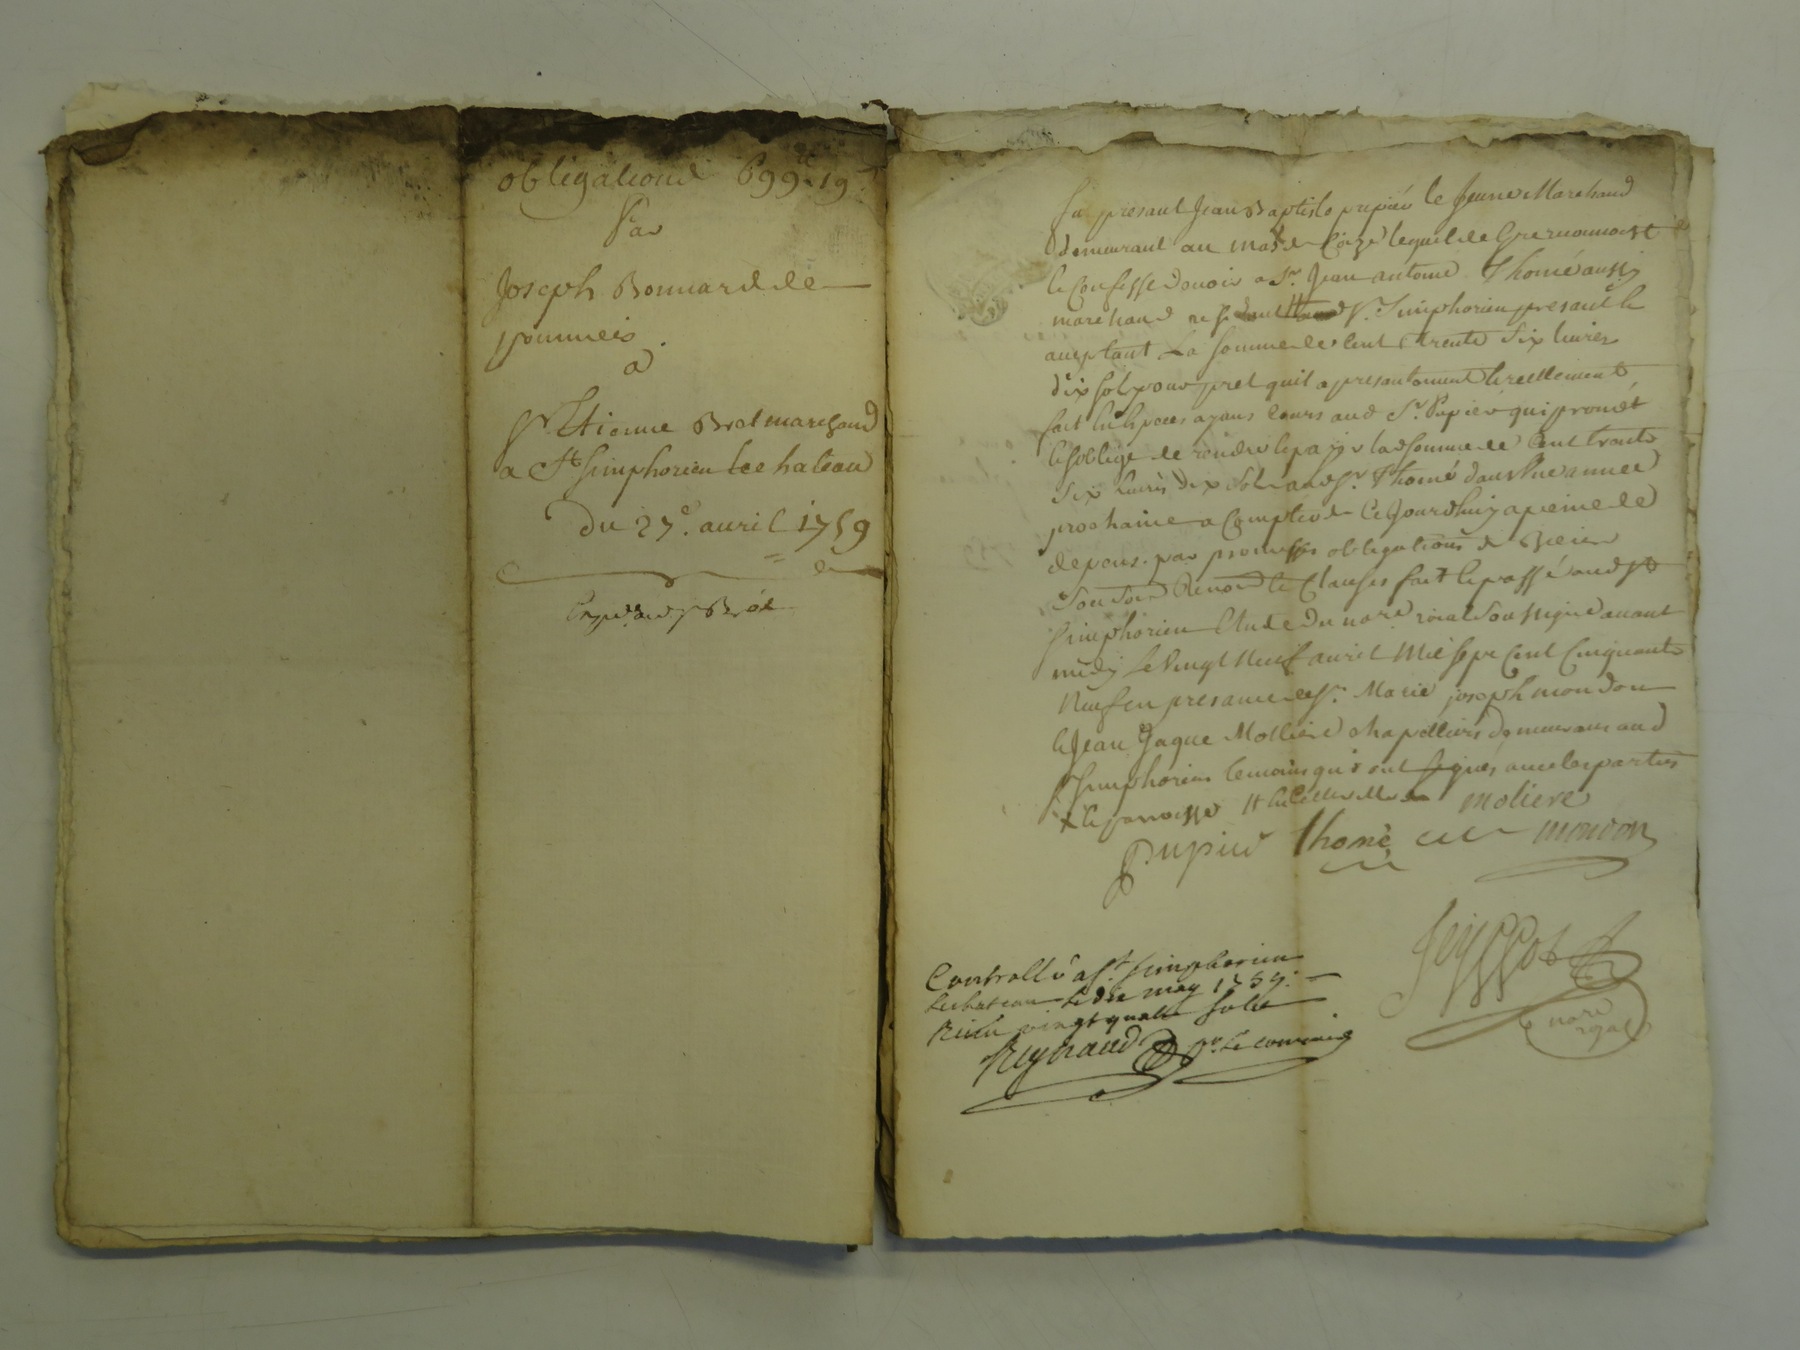 obligationd 699# 19
Par
Joseph Bonnard de
pommeis
a
Sr Etienne Brot marchand
a St Simphorien Le chateau
Du 27e. auril 1759
Expd. aud Sr Brot
fut presant Jean Baptiste pupier le Jeune Marchand
demeurant au mas de Coize lequel de Gre
le Confesse deuoir a Sr. Jean antoine Thomé aussy
marchand St. Simphorien presant &
aceptant La somme de Cent trente Six liures
dix sol pour pret quil a presentement & reellement
fait En Especes ayans Cours aud Sr. Pupier qui promet
& soblige de rendre & payer lad somme de Cent trente
Six liures Dix Sols aud Sr. Thomé dans Une année
prochaine a Compter de Ce Jourdhuy a peine de
depens. par promesses obligations de Biens
Soumon Renon & Clauses fait & passé aud St
Simphorien Etude du nore roial Soussigné auant
midy Le Vingt Neuf auril Mil sept Cent Cinquante
Neuf en presance de Sr. Marie joseph mondon
& Jean Jaque Molliere chapelliers demeurans aud
St Simphorien temoins qui ont signés auec les parties
x & parroisse
moliere
Pupier Thomé mondon
Controllé a St. Simphorien
Le chateau Le may 1759.
Reçu vingt quatre sols
Reynaud pr. Le commis
nore
royal